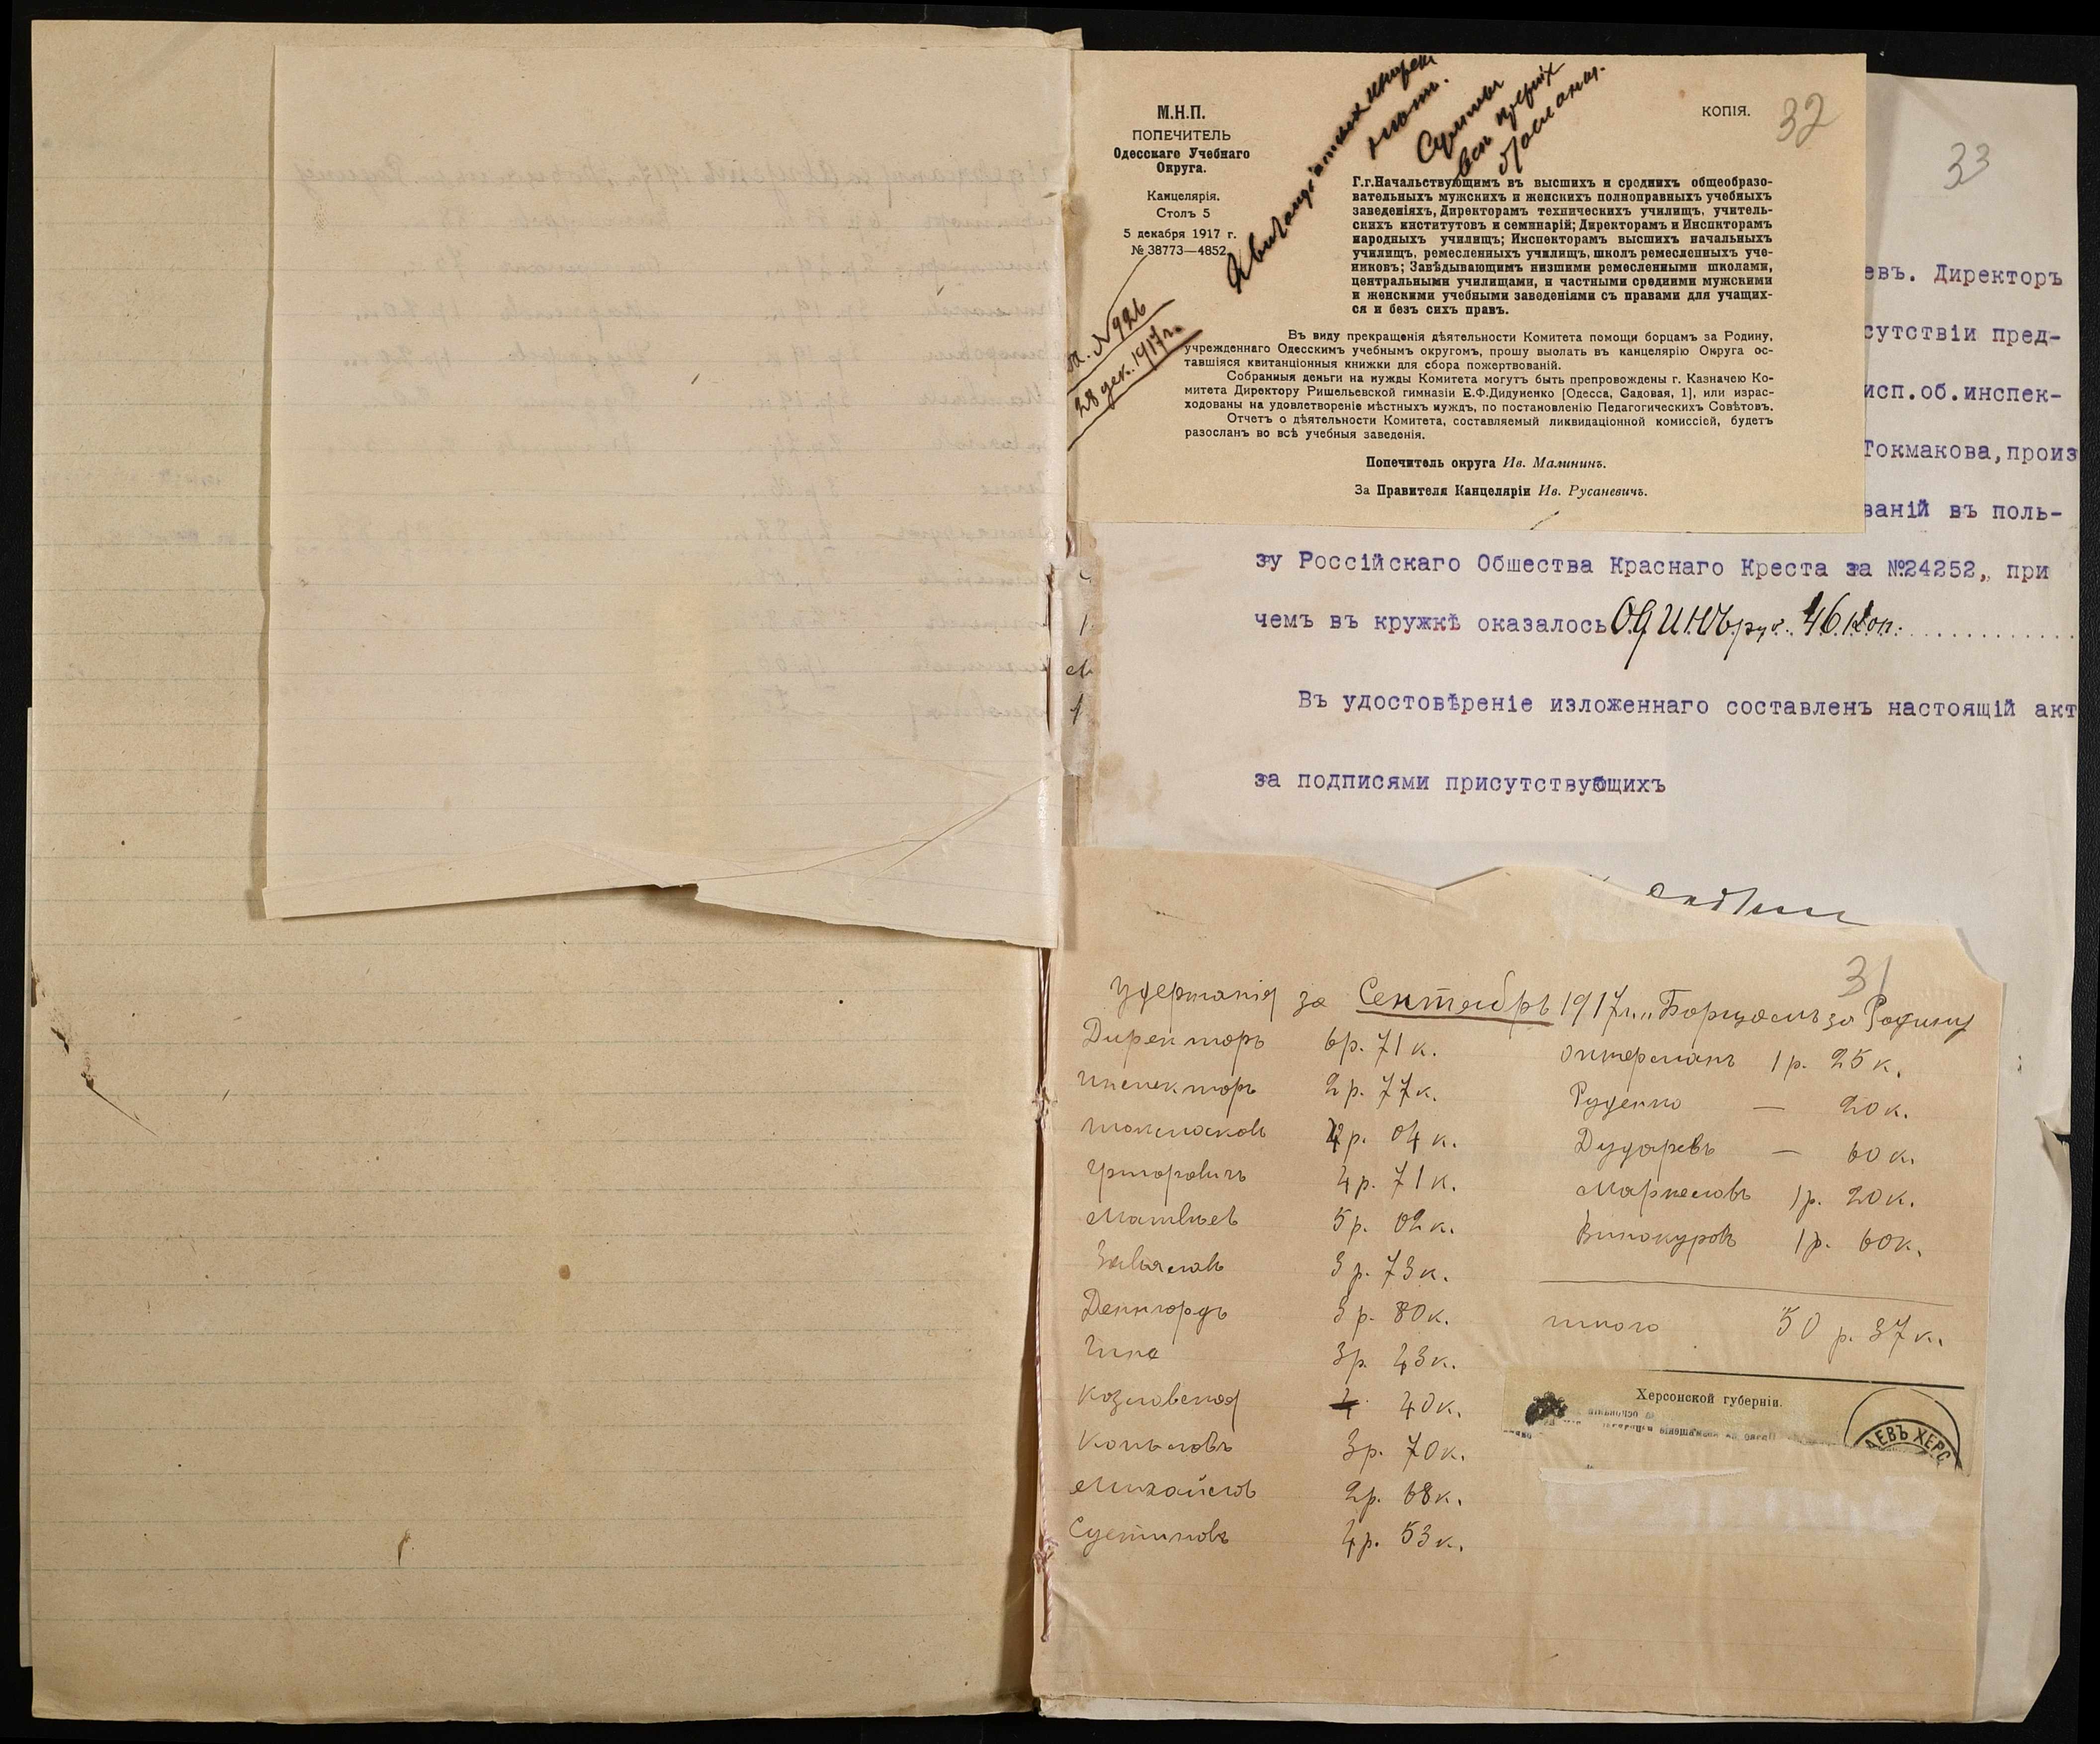 М.Н.П.
ПОПЕЧИТЕЛЬ
Одесскаго Учебнаго
Округа.
Канцелярія.
Столъ 5
5 декабря 1917 г.
№ 38773—4852
№ 926
28 дек. 1917 г.
Суммы
КОПІЯ.
32
Г.г.Начальствующимъ въ высшихъ и среднихъ общеобразо-
вательныхъ мужскихъ и женскихъ полноправныхъ учебныхъ
заведеніяхъ, Директорамъ техническихъ училищъ, учитель-
скихъ институтовъ и семинарій; Директорамъ и Инспкторамъ
народныхъ училищъ; Инспекторамъ высшихъ начальныхъ
училищъ, ремесленныхъ училищъ, школъ ремесленныхъ уче-
никовъ; Завѣдывающимъ низшими ремесленными школами,
центральными училищами, и частными средними мужскими
и женскими учебными заведеніями съ правами для учащих-
ся и безъ сихъ правъ.
Въ виду прекращенія дѣятельности Комитета помощи борцамъ за Родину,
учрежденнаго Одесскимъ учебнымъ округомъ, прошу выслать въ канцелярію Округа ос-
тавшіяся квитанціонныя книжки для сбора пожертвованій.
Собранныя деньги на нужды Комитета могутъ быть препровождены г. Казначею Ко-
митета Директору Ришельевской гимназіи Е.Ф.Дидуненко [Одесса, Садовая, 1], или израс-
ходованы на удовлетвореніе мѣстныхъ нуждъ, по постановленію Педагогическихъ Совѣтовъ.
Отчетъ о дѣятельности Комитета, составляемый ликвидаціонной комиссіей, будетъ
разосланъ во всѣ учебныя заведенія.
Попечитель округа Ив. Малининъ.
За Правителя Канцеляріи Ив. Русаневичъ.
33
евъ. Директоръ
сутствіи пред-
исп.об.инспек-
Токмакова,произ
ваній въ поль-
зу Россійскаго Обшества Краснаго Креста за №24252,, при
чемъ въ кружкѣ оказалось Одинъ руб. 46 коп.
Въ удостовѣреніе изложеннаго составленъ настоящій акт
за подписями присутствующихъ
31
Удержанія за Сентябрь 1917 г. „Борцамъ за Родину
Директоръ 6р. 71 к.
Инспекторъ 2р. 77к.
Токмаковъ 4р. 04 к.
Григоровичъ 4р. 71к.
Матвѣев 5р. 02к.
Завьяловъ 3р. 73к.
Деннгордъ 3р. 80к.
Гине 3р. 43к.
Козловская 40к.
Копыловъ 3р. 70к.
Михайловъ 2р. 68к.
Сустиновъ 4р. 53к.
Онтерманъ 1р. 25к.
Руденко — 20к.
Дударевъ — 60к.
Маркеловъ 1р. 20к.
Винокуровъ 1р. 60к.
итого 50 р. 37к.
Херсонской губерніи.
АЕВЪ ХЕРС